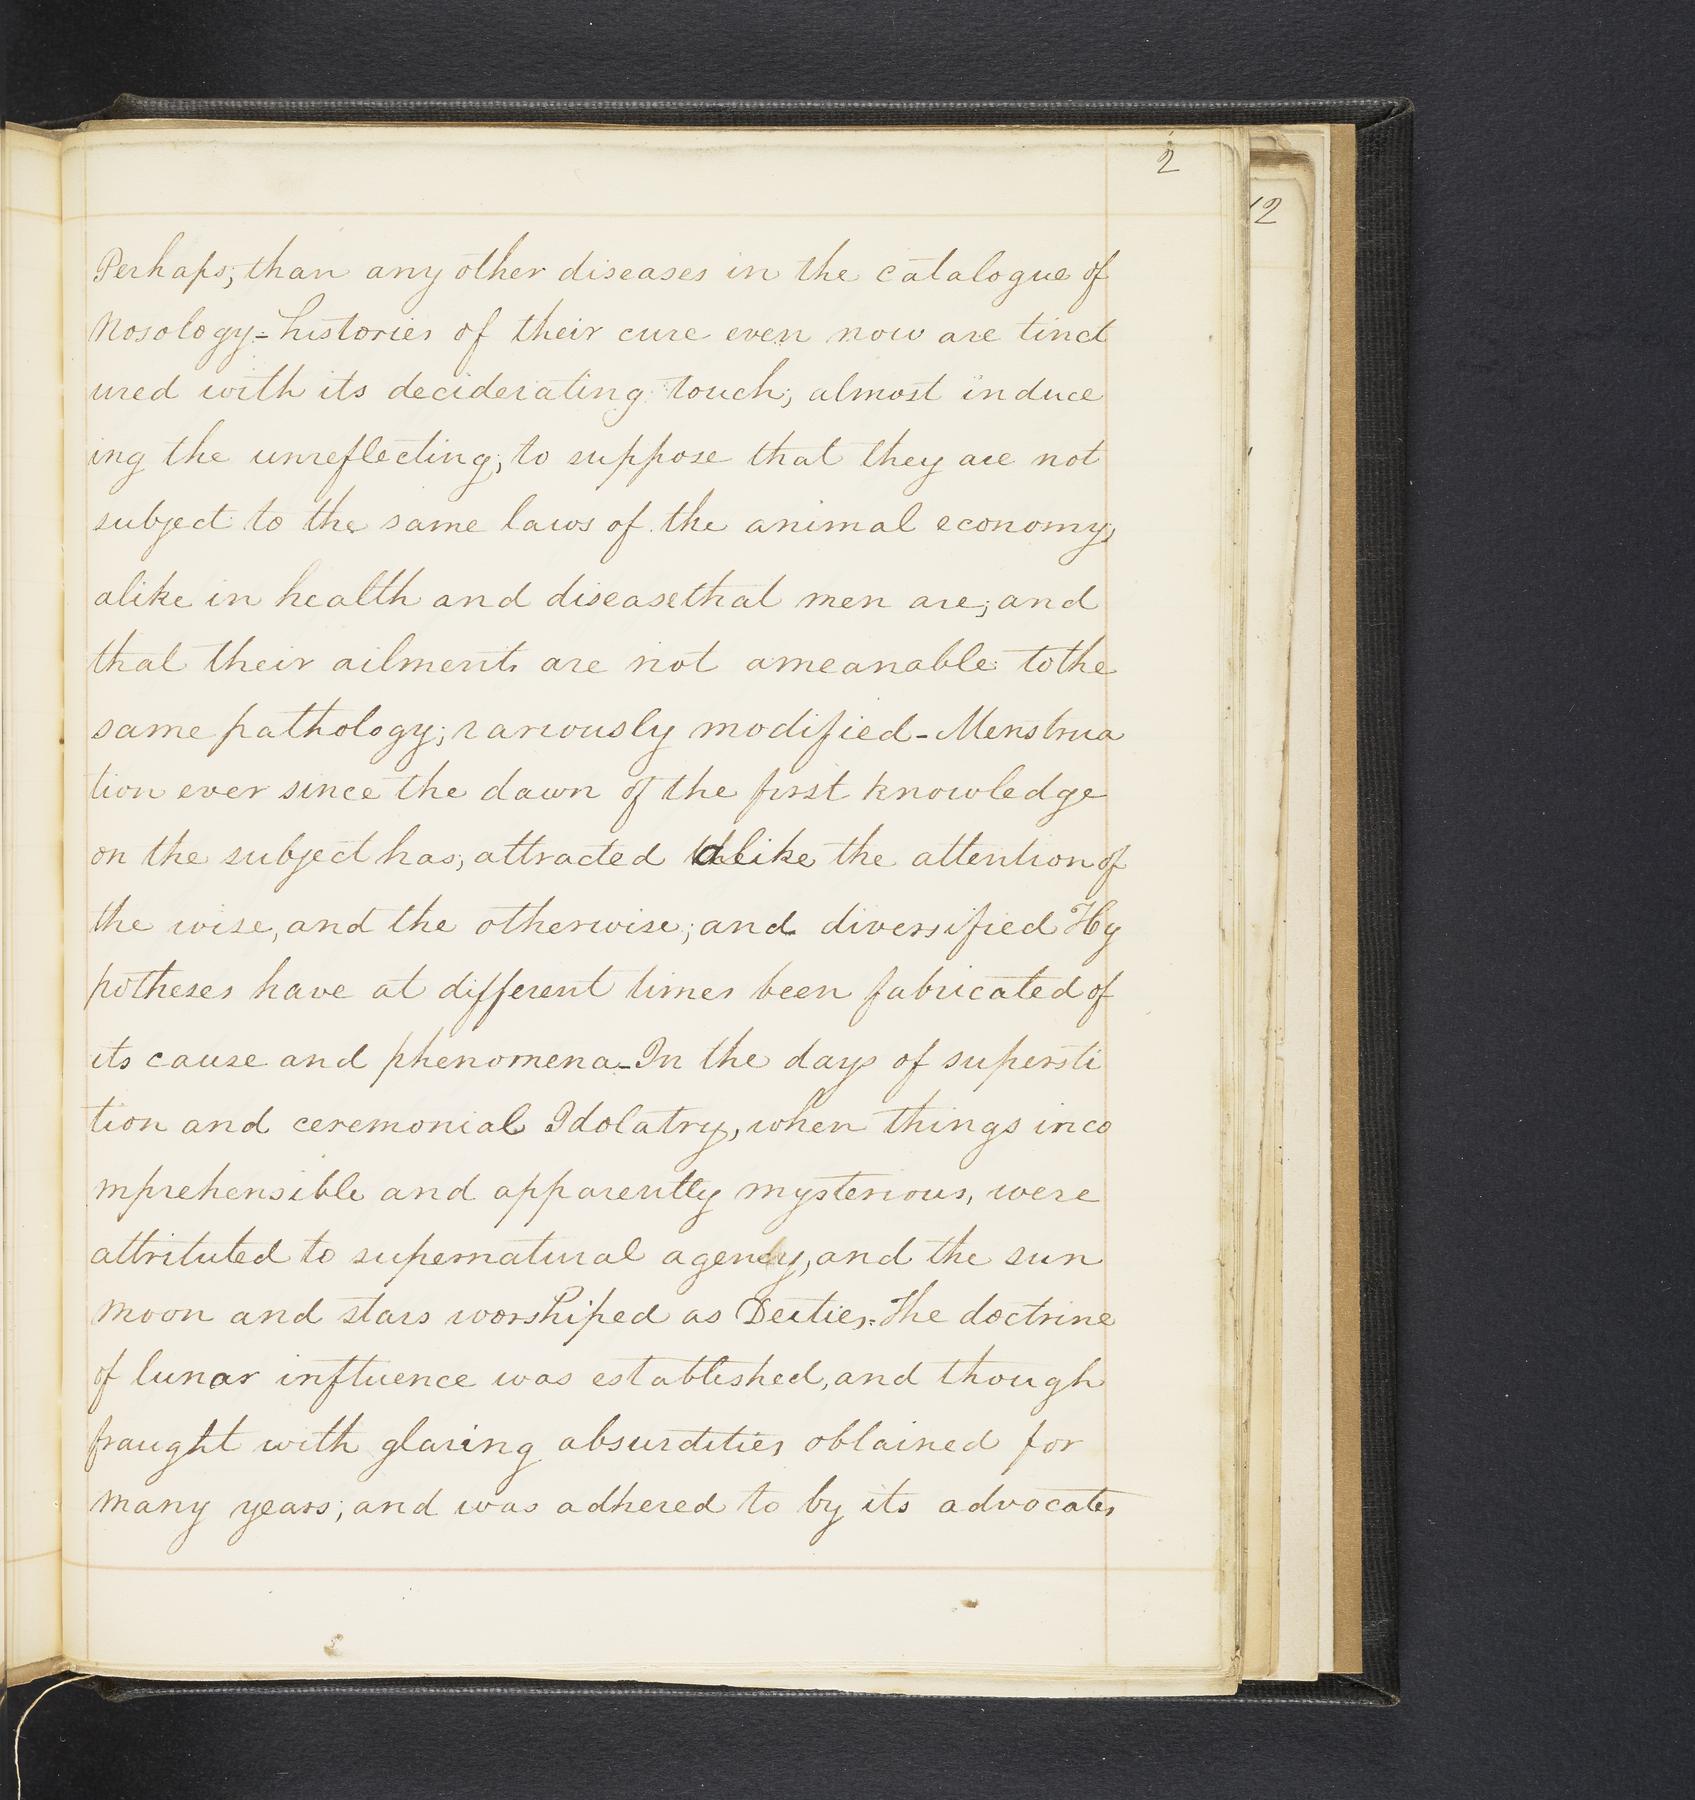 2
12
Perhaps; than any other diseases in the catalogue of
Nosology = histories of their cure even now are tinct
ured with its deciderating touch; almost induce
ing the unreflecting; to suppose that they are not
subject to the same laws of the animal economy,
alike in health and disease that men are; and
that their ailments are not ameanable to the
same pathology; variously modified - Menstrua
tion ever since the dawn of the first knowledge
on the subject has, attracted alike the attention of
the wise, and the otherwise; and diversified Hy
potheses have at different times been fabricated of
its cause and phenomena - In the days of supersti
tion and ceremonial Idolatry, when things inco
mprehensible and apparently mysterious, were
attrituted to supernatural agency, and the sun
moon and stars worshiped as Deities. The doctrine
of lunar influence was established, and though
fraught with glaring absurdities obtained for
many years; and was adhered to by its advocates